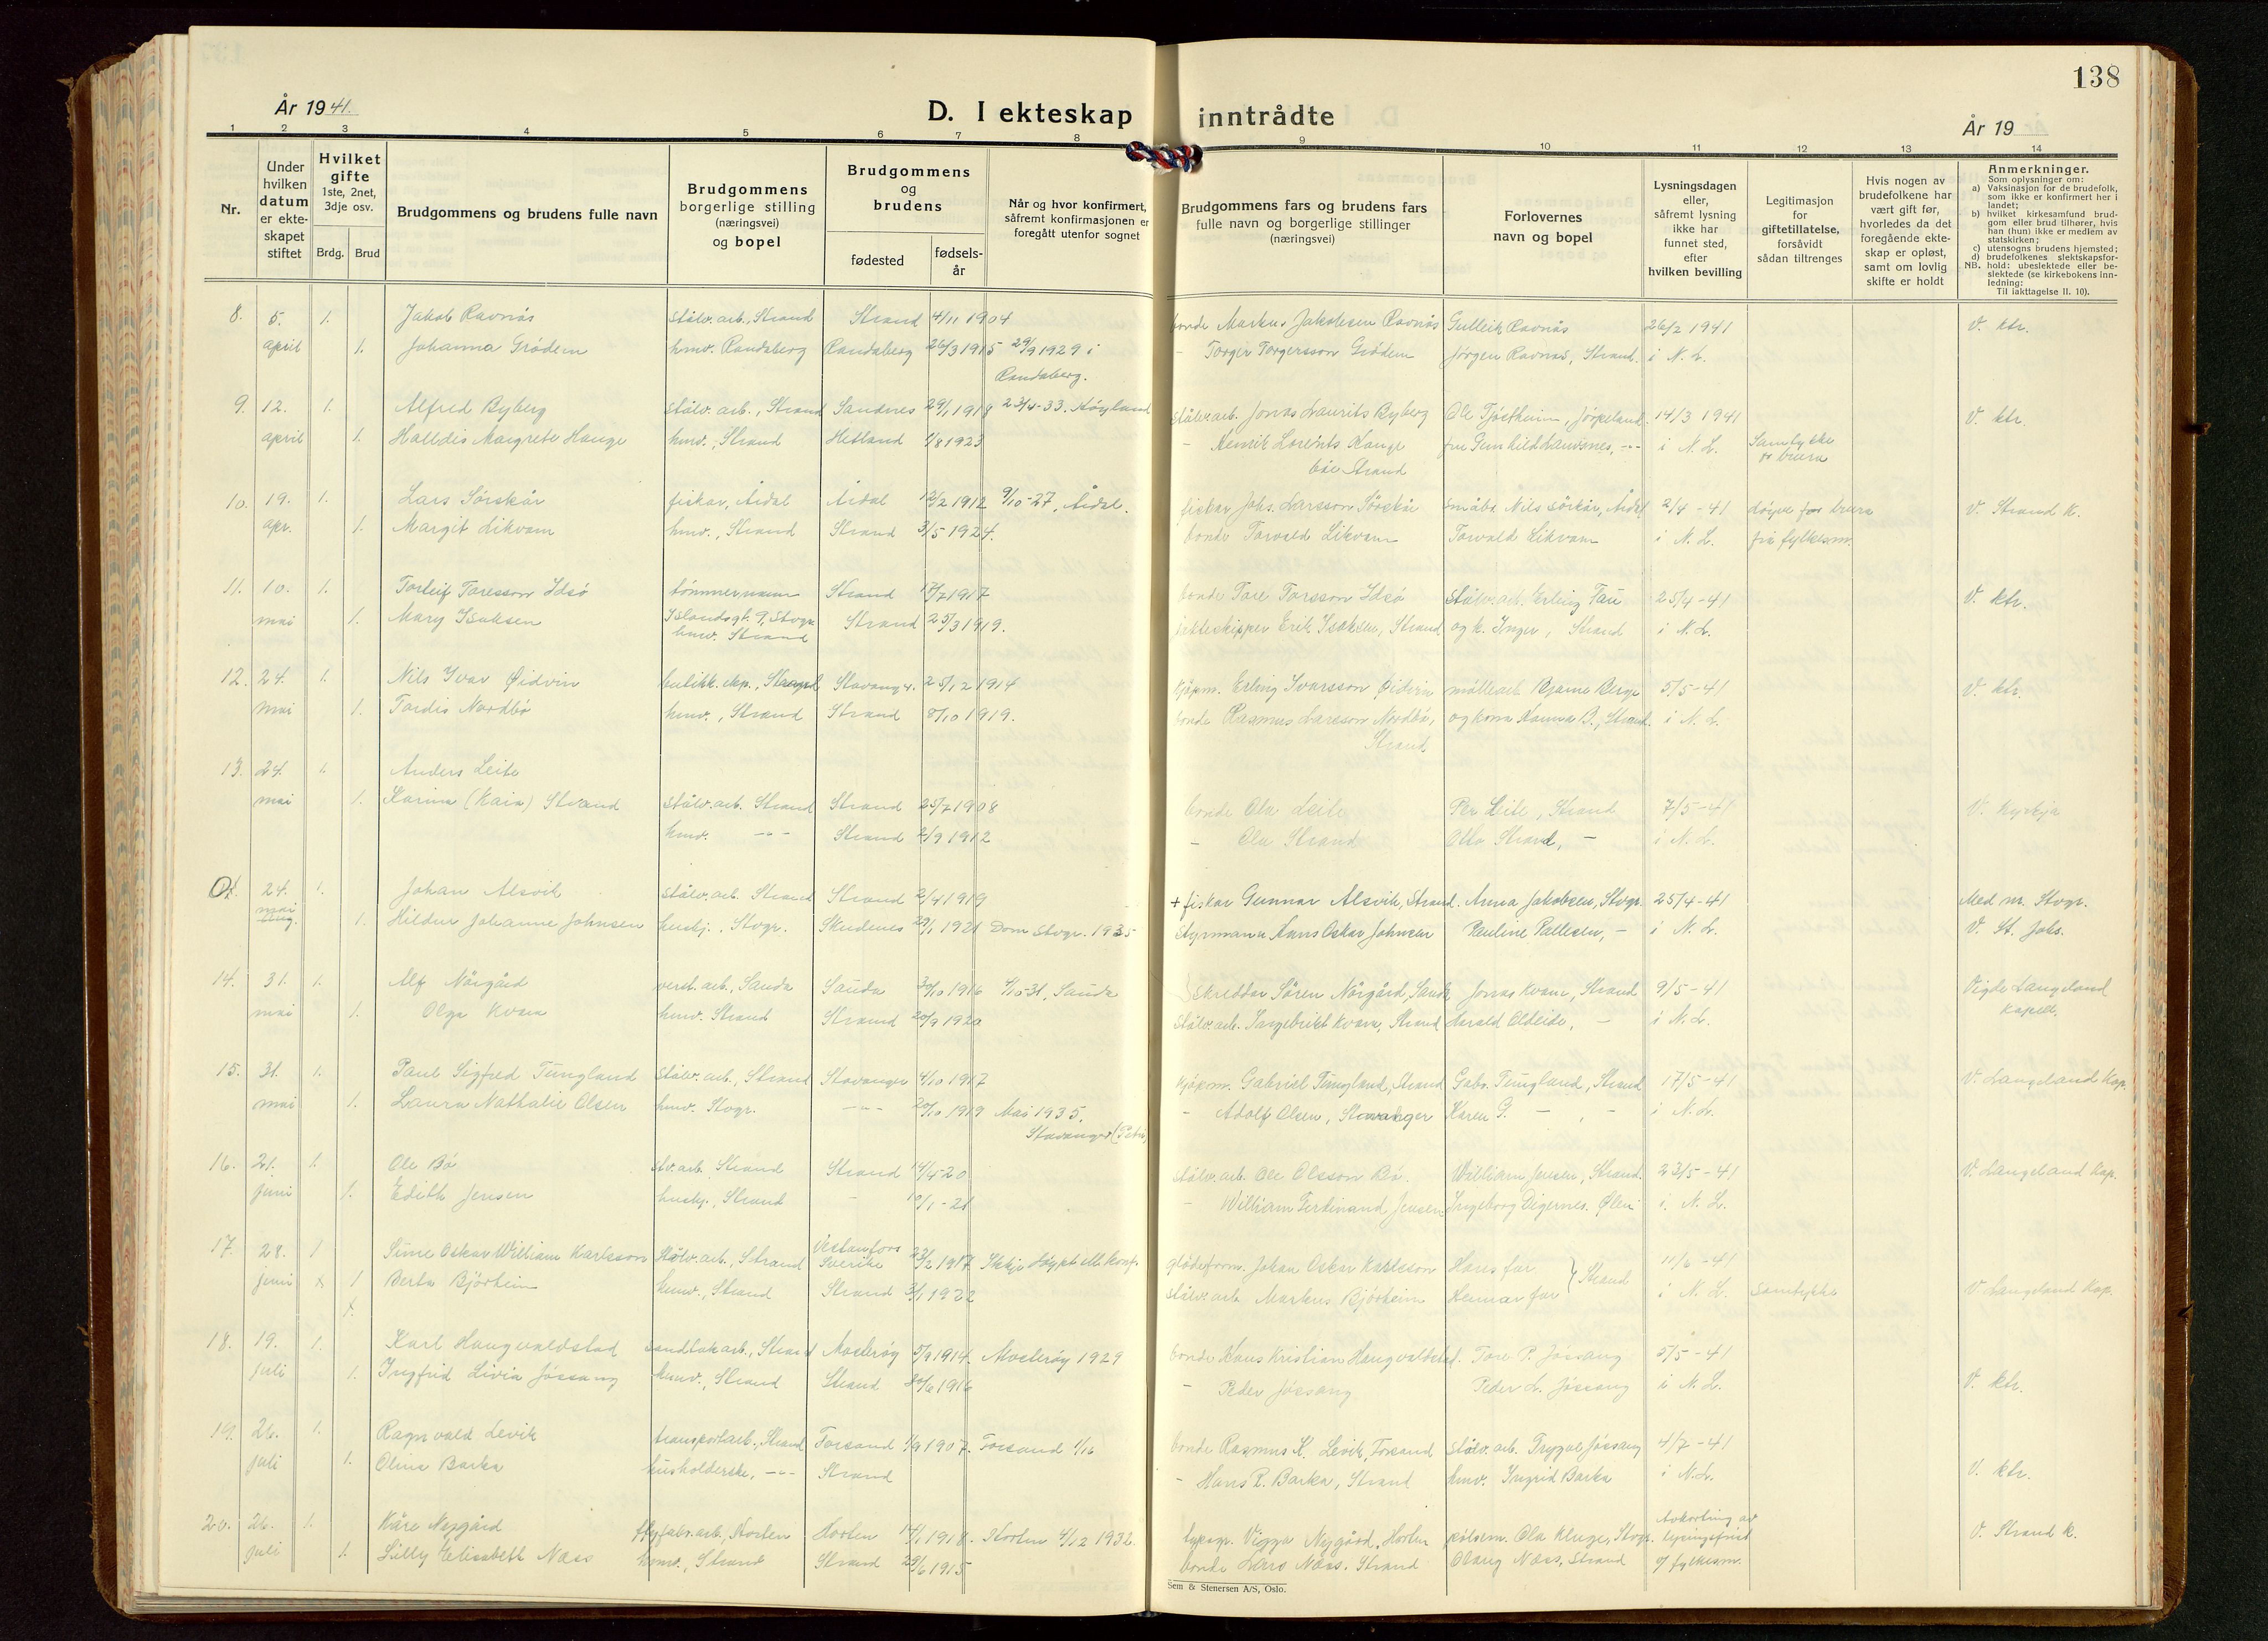 138
År 1941.
D. I ekteskap inntrådte
År 19
1 2 3 4 5 6 7 8 9 10 11 12 13 14
Nr.
Under hvilken datum er ekteskapet stiftet
Hvilket gifte 1ste, 2net, 3dje osv.
Brdg. Brud
Brudgommens og brudens fulle navn
Brudgommens borgerlige stilling (næringsvei) og bopel
Brudgommens og brudens
fødested
fødselsår
Når og hvor konfirmert, såfremt konfirmasjonen er foregått utenfor sognet
Brudgommens fars og brudens fars fulle navn og borgerlige stillinger (næringsvei)
Forlovernes navn og bopel
Lysningsdagen eller, såfremt lysning ikke har funnet sted, efter hvilken bevilling
Legitimasjon for giftetillatelse, forsåvidt sådan tiltrenges
Hvis nogen av brudefolkene har vært gift før, hvorledes da det foregående ekteskap er opløst, samt om lovlig skifte er holdt
Anmerkninger.
Som oplysninger om:
a) Vaksinasjon for de brudefolk, som ikke er konfirmert her i landet;
b) hvilket kirkesamfund brudgom eller brud tilhører, hvis han (hun) ikke er medlem av statskirken;
c) utensogns brudens hjemsted;
d) brudefolkenes slektskapsforhold: ubeslektede eller beslektede (se kirkebokens innledning:
NB. Til iakttagelse II. 10).
8. 5. 1. Jakob Ravnås stålv. arb., Strand Strand 4/11 1904 bonde Markus Jakobsen Ravnås Gulleik Ravnås 26/2 1941 V. ktr.
april 1. Johanna Grødem hmv. Randaberg Randaberg 26/3 1915 29/9 1929 i - Torger Torgersson Grødem Jørgen Ravnås, Strand. i N. L.
Randaberg.
9. 12. 1. Alfred Byberg stålv. arb., Strand Sandnes 29/1 1918 23/4-33. Høyland stålv. arb. Jonas Laurits Byberg Ole Tjøstheim, Jørpeland 14/3 1941 V. ktr.
april 1. Halldis Margrete Hauge hmv., Strand Hetland 1/8 1923 - Henrik Lorents Hauge fru Gunhild Launsnes, -"- i N. L. Samtykke
bæe Strand
10. 19. 1. Lars Sørskår fiskar, Årdal Årdal 12/2 1912 9/10-27, Årdal. fiskar Johs. Larsson Sørskår småbr. Nils Sørskår, Årdal 2/4-41 Løyve for brura V. Strand K.
apr. 1. Margit Likvam hmv., Strand Strand 3/5 1924. bonde Torvald Likvam Torvald Likvam i N. L. frå fylkesm.
11. 10. 1. Torleif Toresson Idsø tømmermann Strand 17/7 1917 bonde Tore Torsson Idsø Stålv. arb. Erling Tau 25/4-41 V. ktr.
mai 1. Mary Isaksen Islandsgt. 9, Stvgr. hmv. Strand Strand 25/3 1919. jekteskipper Erik Isaksen, Strand og k. Inger, Strand i N. L.
12. 24. 1. Nils Ivar Øidvin butikk. eksp., Strand Stavanger 25/12 1914 kjøpm. Erling Ivarsson Øidvin møllearb. Bjarne Berge 5/5-41 V. ktr.
mai 1. Tordis Nordbø hmv., Strand Strand 8/10 1919. bonde Rasmus Larsson Nordbø, og kona Hanna B., Strand. i N. L.
Strand
13. 24. 1. Anders Leite
mai 1. Karina (Kaia) Strand stålv. arb. Strand Strand 25/7 1908 bonde Ola Leite Per Leite, Strand 7/5-41 V. kyrkja
hmv. -"- Strand 2/9 1912 - Ola Strand Otto Strand, - i N. L.
24. 1. Johan Alsvik stålv. arb. Strand Strand 2/4 1919 + fiskar Gunnar Alsvik, Strand. Anna Jakobsen, Stvgr. 25/4-41 Med nr. Stvgr.
mai 1. Hildur Johanne Johnsen hushj., Stvgr. Skudenes 29/1 1921 Dom Stvgr. 1935 Styrmann Hans Oskar Johnsen Pauline Pallesen, - i N. L. V. St. Johs.
14. 31. 1. Alf Nørgård verst. arb., Sauda Sauda 30/10 1916 4/10-31, Sauda Skreddar Søren Nørgård, Sauda Jonas Kvam, Strand 9/5-41 Vigde Langeland
mai 1. Olga Kvam hmv. Strand Strand 20/9 1920 stålv. arb. Ingebrikt Kvam, Strand Harald Oldeide, - i N. L. kapell.
15. 31. 1. Paul Sigfred Tungland Stålv. arb., Strand Stavanger 4/10 1917 kjøpm. Gabriel Tungland, Strand Gabr. Tungland, Strand 17/5-41 V. Langeland Kap.
mai 1. Laura Nathalie Olsen hmv. Stvgr. -"- 20/10 1919 Mai 1935, - Adolf Olsen, Stavanger Karen G. - , - i N. L.
Stavanger (Petri)
16. 21. 1. Ole Bø stv. arb. Strand Strand 14/4-20 stålv. arb. Ole Olsson Bø. William Jensen, Strand. 23/5-41 V. Langeland Kap.
juni 1. Edith Jensen hushj., Strand - 10/1-21 - William Ferdinand Jensen Ingeborg Digernes. Ølen i. N. L.
17. 28. 1 Sune Oskar William Karlsson Stålv. arb., Strand Vestanfors Sverike 23/2 1917 Ikkje døypt ell. konf. glødeform. Johan Oskar Karlsson Hans far } Strand 11/6-41
juni x 1 Berta Bjørheim hmv., Strand Strand 3/1 1922 stålv. arb. Markus Bjørheim Hennar far i N. L. Samtykke V. Langeland Kap.
18. 19. 1. Karl Haugvaldstad sandtak arb., Strand Mosterøy 5/9 1914. Mosterøy 1929 bonde Hans Kristian Haugvaldstad. Tore P. Jøssang 5/5-41
juli 1. Ingfrid Livia Jøssang hmv., Strand Strand 30/6 1916 - Peder Jøssang Peder L. Jøssang i N. L. V. ktr.
19. 26. 1. Ragnvald Levik transportarb., Strand Forsand 1/9 1907. Forsand 1/16 bonde Rasmus K. Levik, Forsand stålv. arb. Trygve Jøssang 4/7-41
juli 1. Olina Barka husholderske, -"- Strand - Hans R. Barka, Strand hmv. Ingrid Barka i N. L. V. ktr.
20. 26. 1. Kåre Nygård flyfabr. arb., Horten Horten 14/1 1918. Horten 4/12 1932. typogr. Viggo Nygård, Horten pølsem. Ola Kluge, Stvgr. Avkorting av lysingsfrist V. Strand K.
juli 1. Lilly Elisabeth Næss hmv., Strand Strand 29/6 1915 bonde Lars Næss. Strand Olaug Næss, Strand v/ fylkesm.
Sem & Stenersen A/S, Oslo.